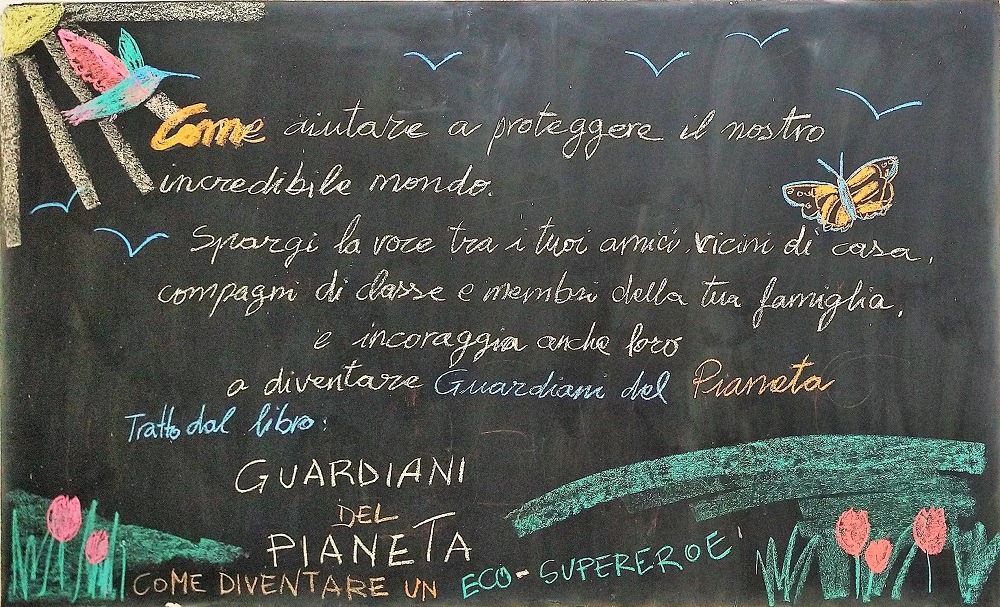 Come aiutare a proteggere il nostro
incredibile mondo.
Spargi la voce tra i tuoi amici, vicini di casa,
compagni di classe e membri della tua famiglia,
e incoraggia anche loro
a diventare Guardiani del Pianeta
Tratto dal libro:
GUARDIANI
DEL
PIANETA
COME DIVENTARE UN ECO-SUPEREROE'